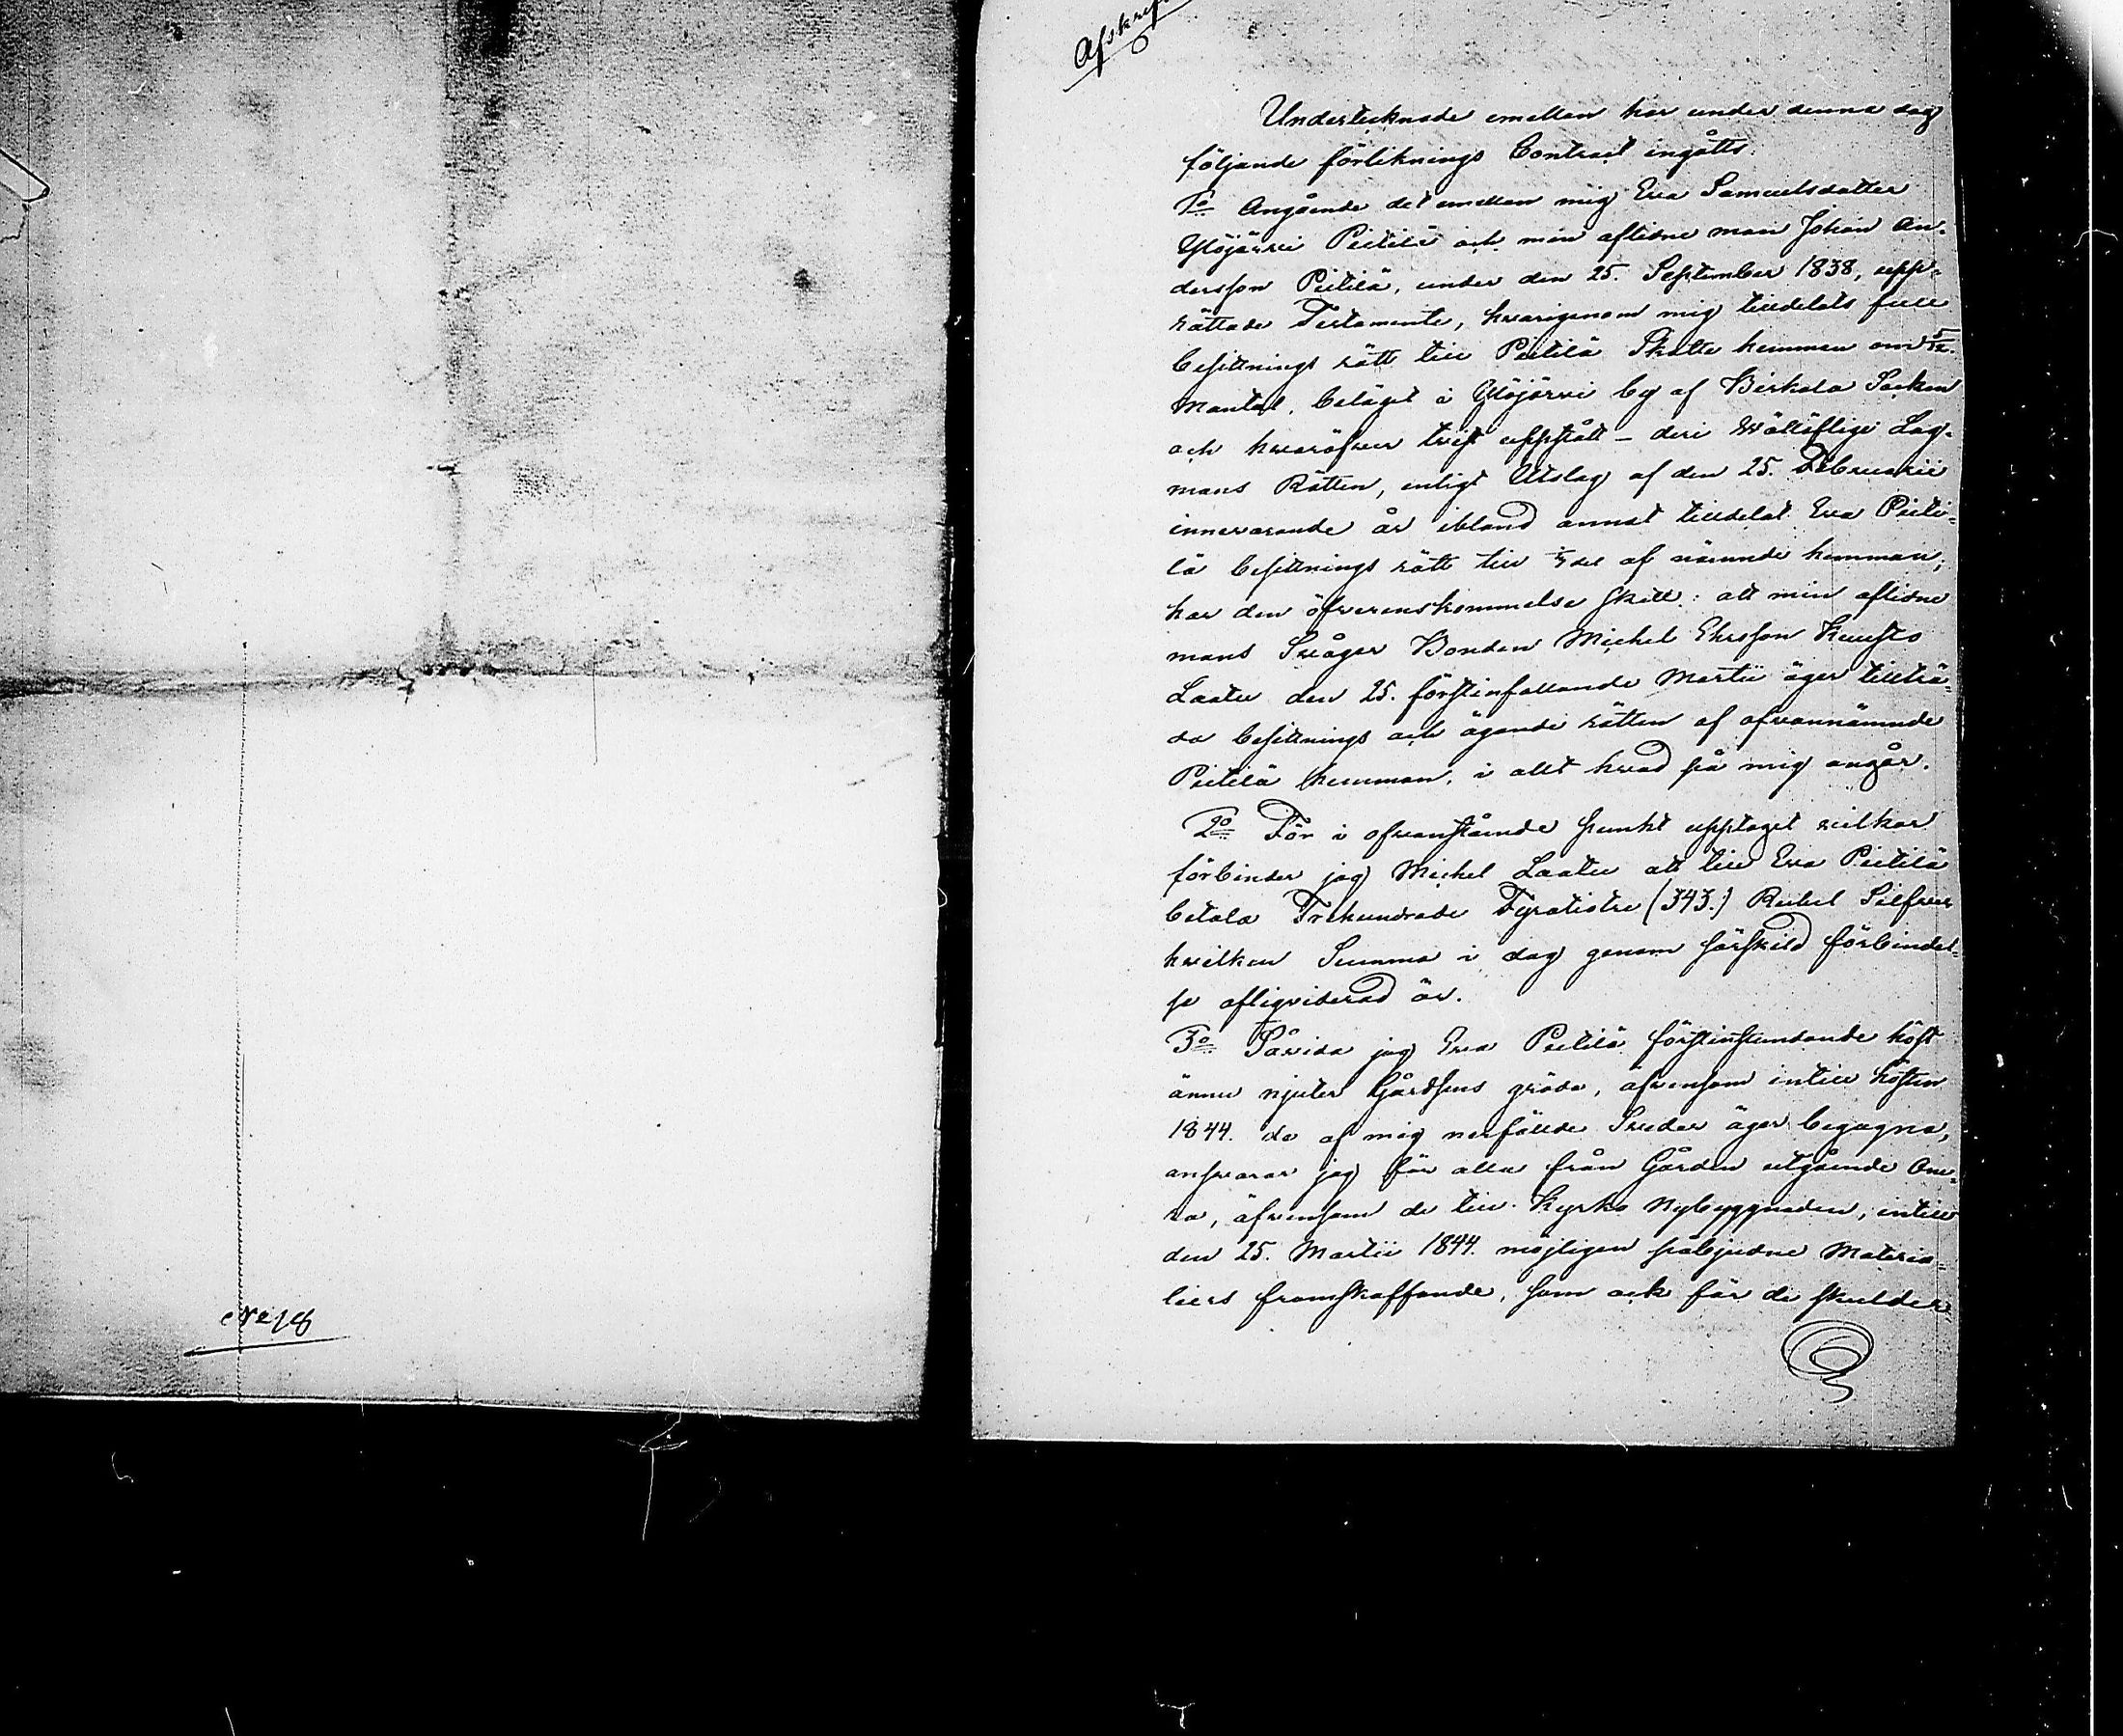 No 18
Afskrift
Undertecknade emellan har under denna dag
följande förliknings Contract ingåtts:
1o Angående det emellan mig Eva Samuelsdotter
Ylöjärvi Pietilä och min aflidne man Johan An-
dersson Pietilä, under den 25. September 1838, upp-
rättade Testamente, hvarigenom mig tilldelats full
besittnings rätt till Pietilä Skatte hemman om 5/12.
Mantal, beläget i Ylöjärvi by af Birkala Socken
och hvaröfver tvist uppstått – deri Wällöflige Lag-
mans Rätten, enligt Utslag af den 25. Februarii
innevarande år ibland annat tilldelat Eva Pieti-
lä besittnings rätt till del af nämnde hemman;
har den öfverenskommelse skett: att min aflidne
mans Svåger Bonden Michel Ehrsson Kuusto
Laatu den 25. förstinfallande Martii äger tillträ-
da besittnings och ägande rätten af ofvannämnde
Pietilä hemman, i allt hvad på mig angår.
2o För i ofvanstående punkt upptaget vilkor
förbinder jag Michel Laatu att till Eva Pietilä
betala Trehundrade Fyratiotre (343.) Rubel Silfver
hvilken Summa i dag genom särskild förbindel-
se afliqviderad är.
3o Såvida jag Eva Pietilä förstinstundande höst
ännu njuter Gårdsens gröda, äfvensom intill hösten
1844. de af mig nerfällde Svedar äger begagna,
ansvarar jag för alla från Gården utgående One-
ra, äfvensom de till Kyrko Nybyggnaden, intill
den 25. Martii 1844. möjligen påbjudne Materia-
liers framskaffande, som ock för de skulder